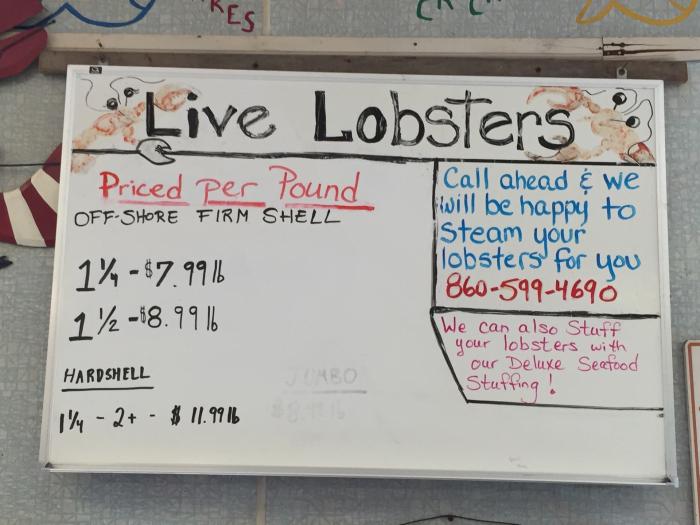 Live Lobsters
Priced Per Pound
OFF-SHORE FIRM SHELL
1 1/4 - $7.99 lb
1 1/2 - $8.99 lb
HARDSHELL
1 1/4 - 2+ - $ 11.99 lb
JUMBO
Call ahead & we
will be happy to
Steam your
lobsters for you
860-599-4690
We can also Stuff
your lobsters with
our Deluxe Seafood
Stuffing!